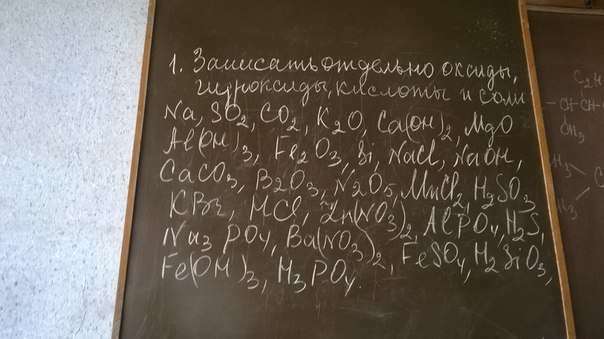 1. Записать отдельно оксиды,
гидроксиды, кислоты и соли
Na, SO2, CO2, K2O, Ca(OH)2, MgO
Al(OH)3, Fe2O3, Si, NaCl, NaOH,
CaCO3, B2O3, N2O5, MnCl2, H2SO3
KBr, HCl, Zn(NO3)2, AlPO4, H2S,
Na3PO4, Ba(NO3)2, FeSO4, H2SiO3,
Fe(OH)3, H3PO4.
C2H
- CH - CH - C
CH3